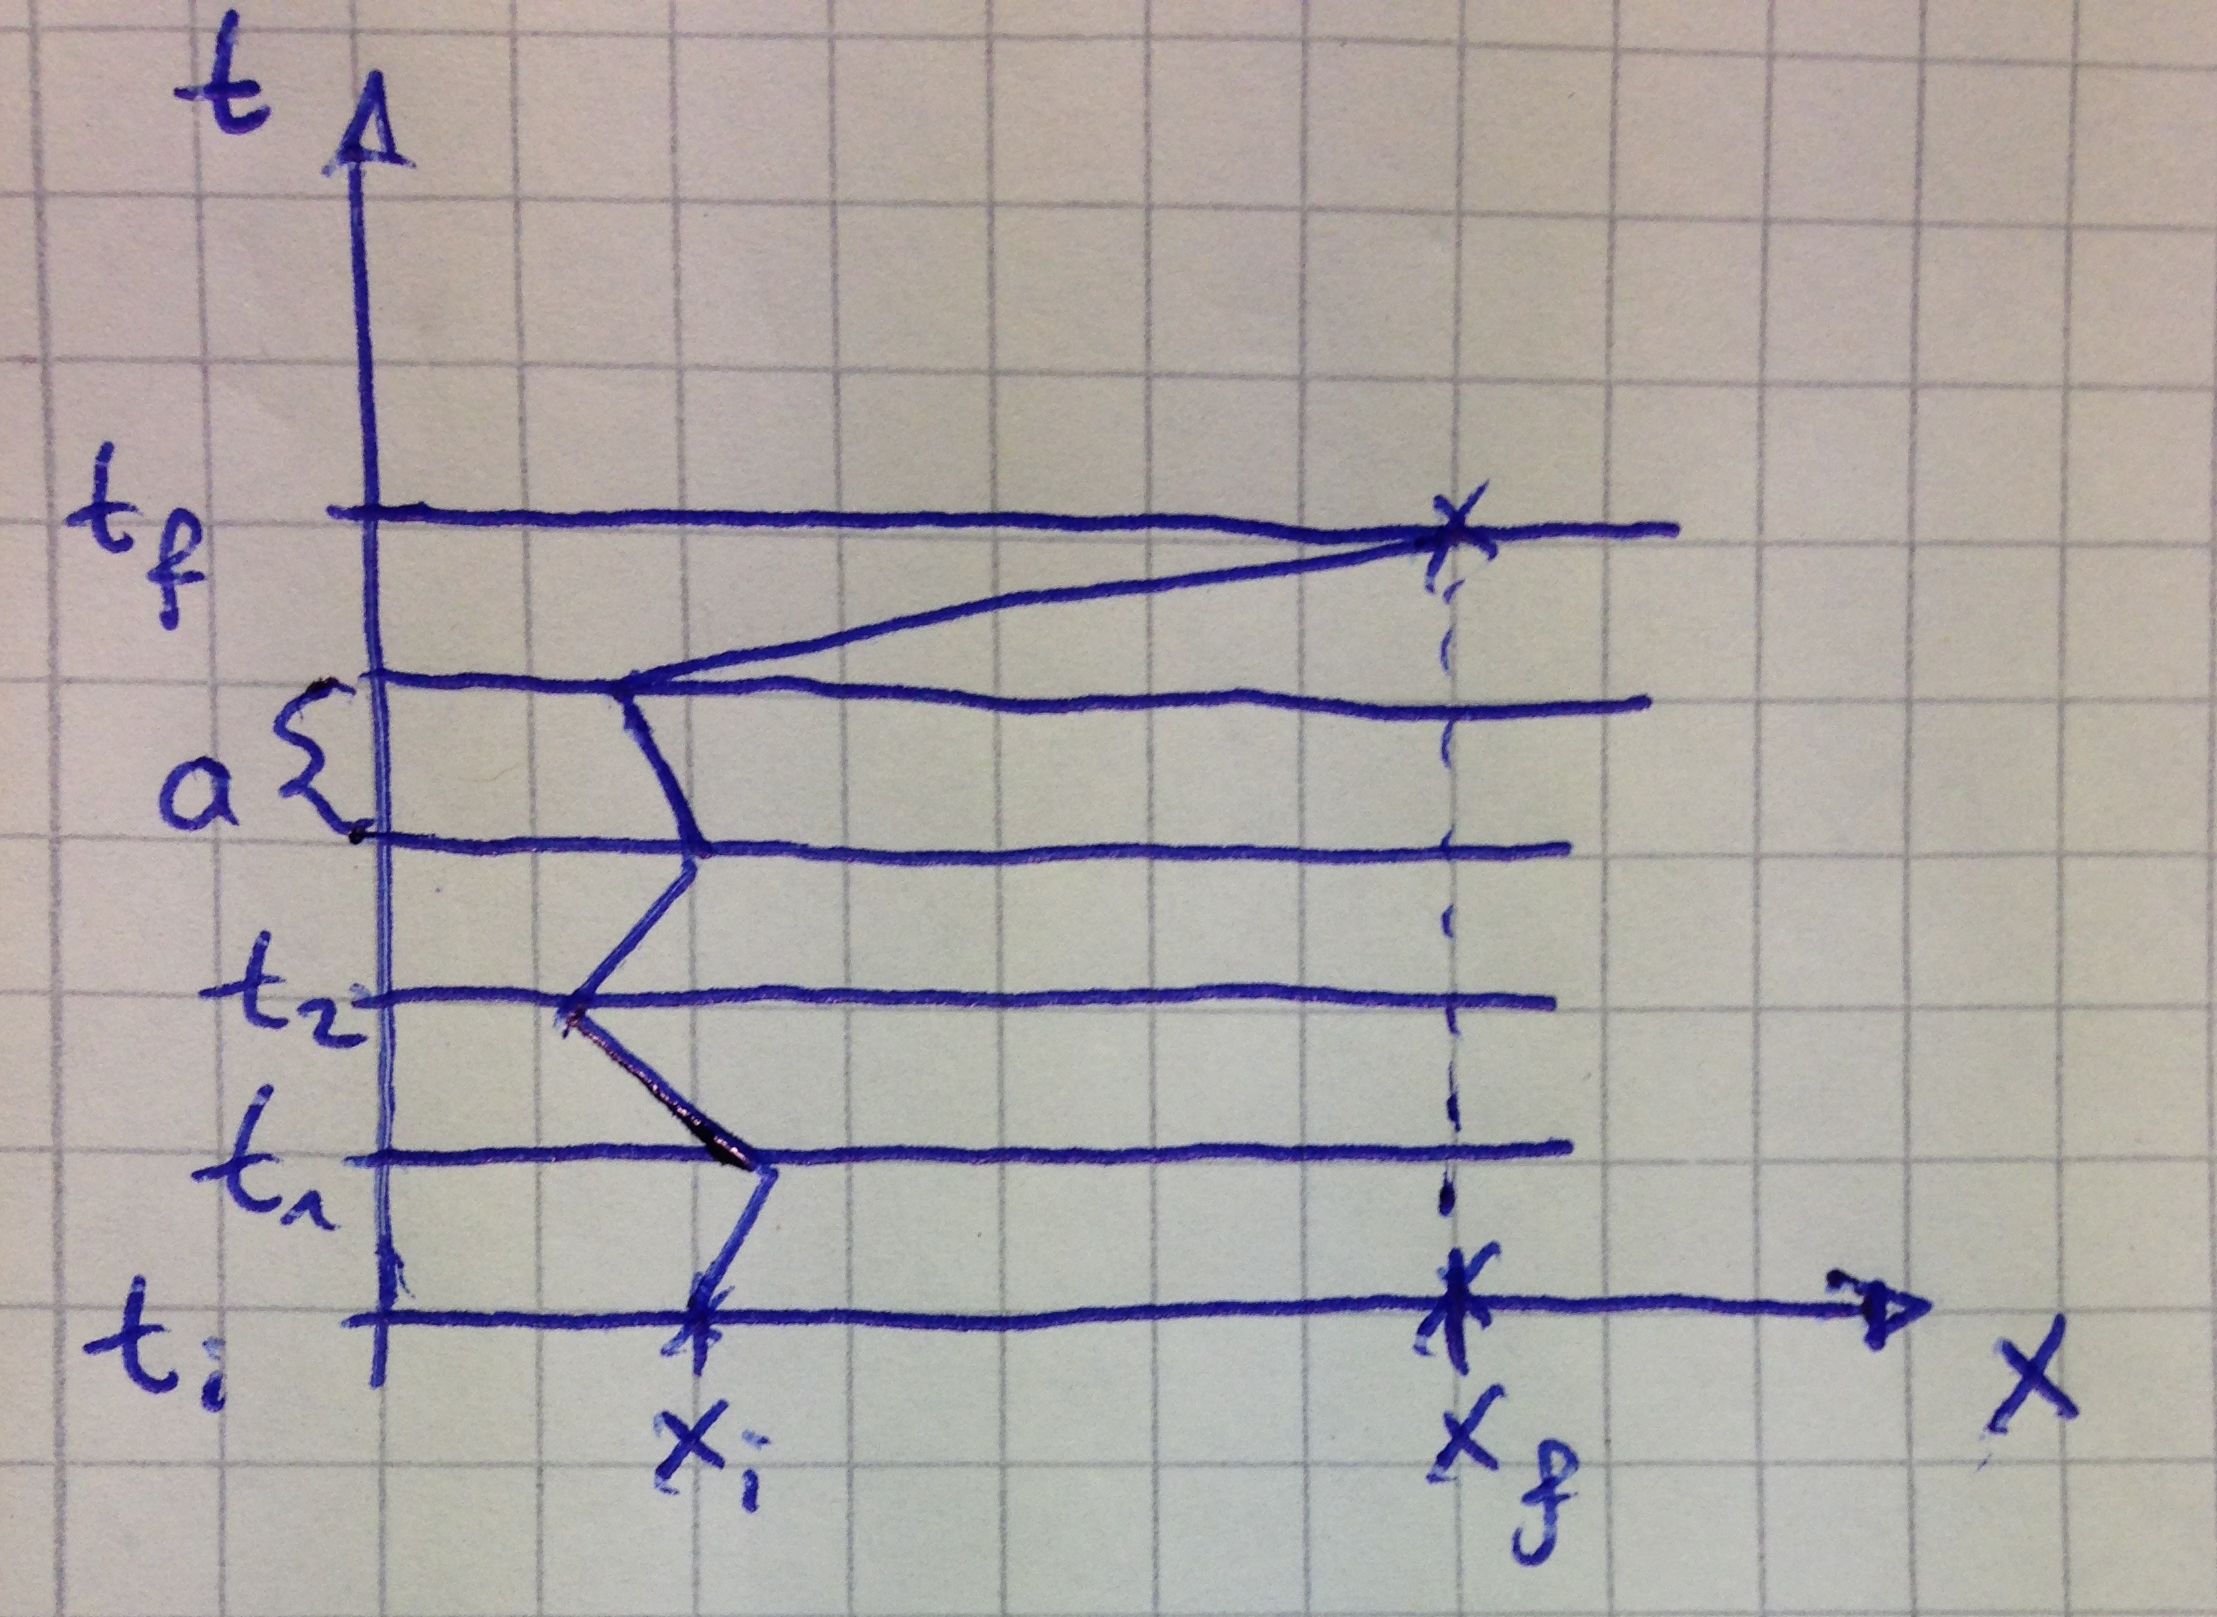 t
t_f
a
t_2
t_1
t_i
x_i
x_f
x